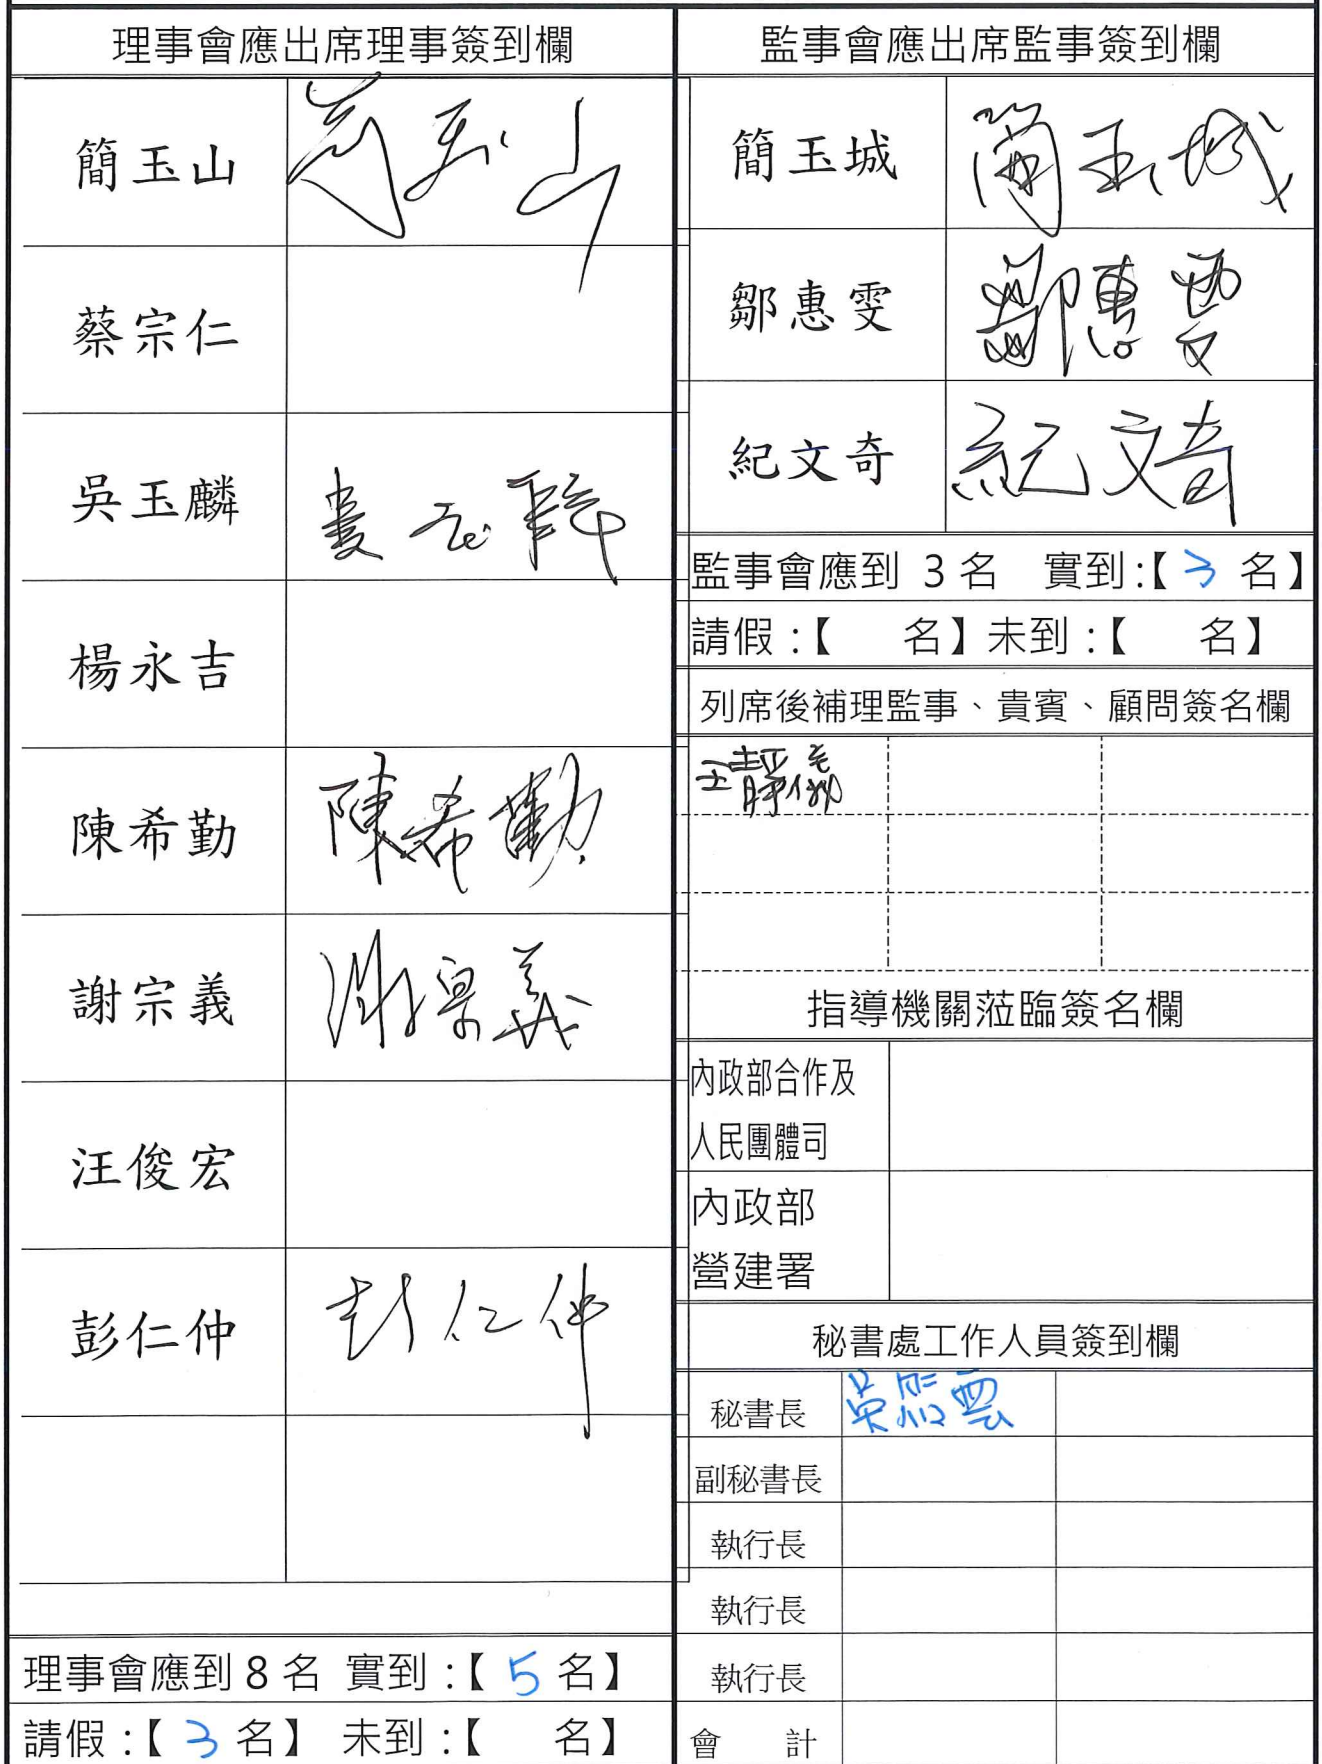 理事會應出席理事簽到欄
簡玉山 簡玉山
蔡宗仁
吳玉麟
楊永吉
陳希勤 陳希勤
謝宗義 謝宗義
汪俊宏
彭仁仲 彭仁仲
理事會應到 8 名 實到:【 5 名】
請假:【 3 名】 未到:【 名】
監事會應出席監事簽到欄
簡玉城 簡玉城
鄒惠雯 鄒惠雯
紀文奇 紀文奇
監事會應到 3 名 實到:【 3 名】
請假:【 名】未到:【 名】
列席後補理監事、貴賓、顧問簽名欄
王靜儀
指導機關蒞臨簽名欄
內政部合作及
人民團體司
內政部
營建署
秘書處工作人員簽到欄
秘書長
副秘書長
執行長
執行長
執行長
會 計